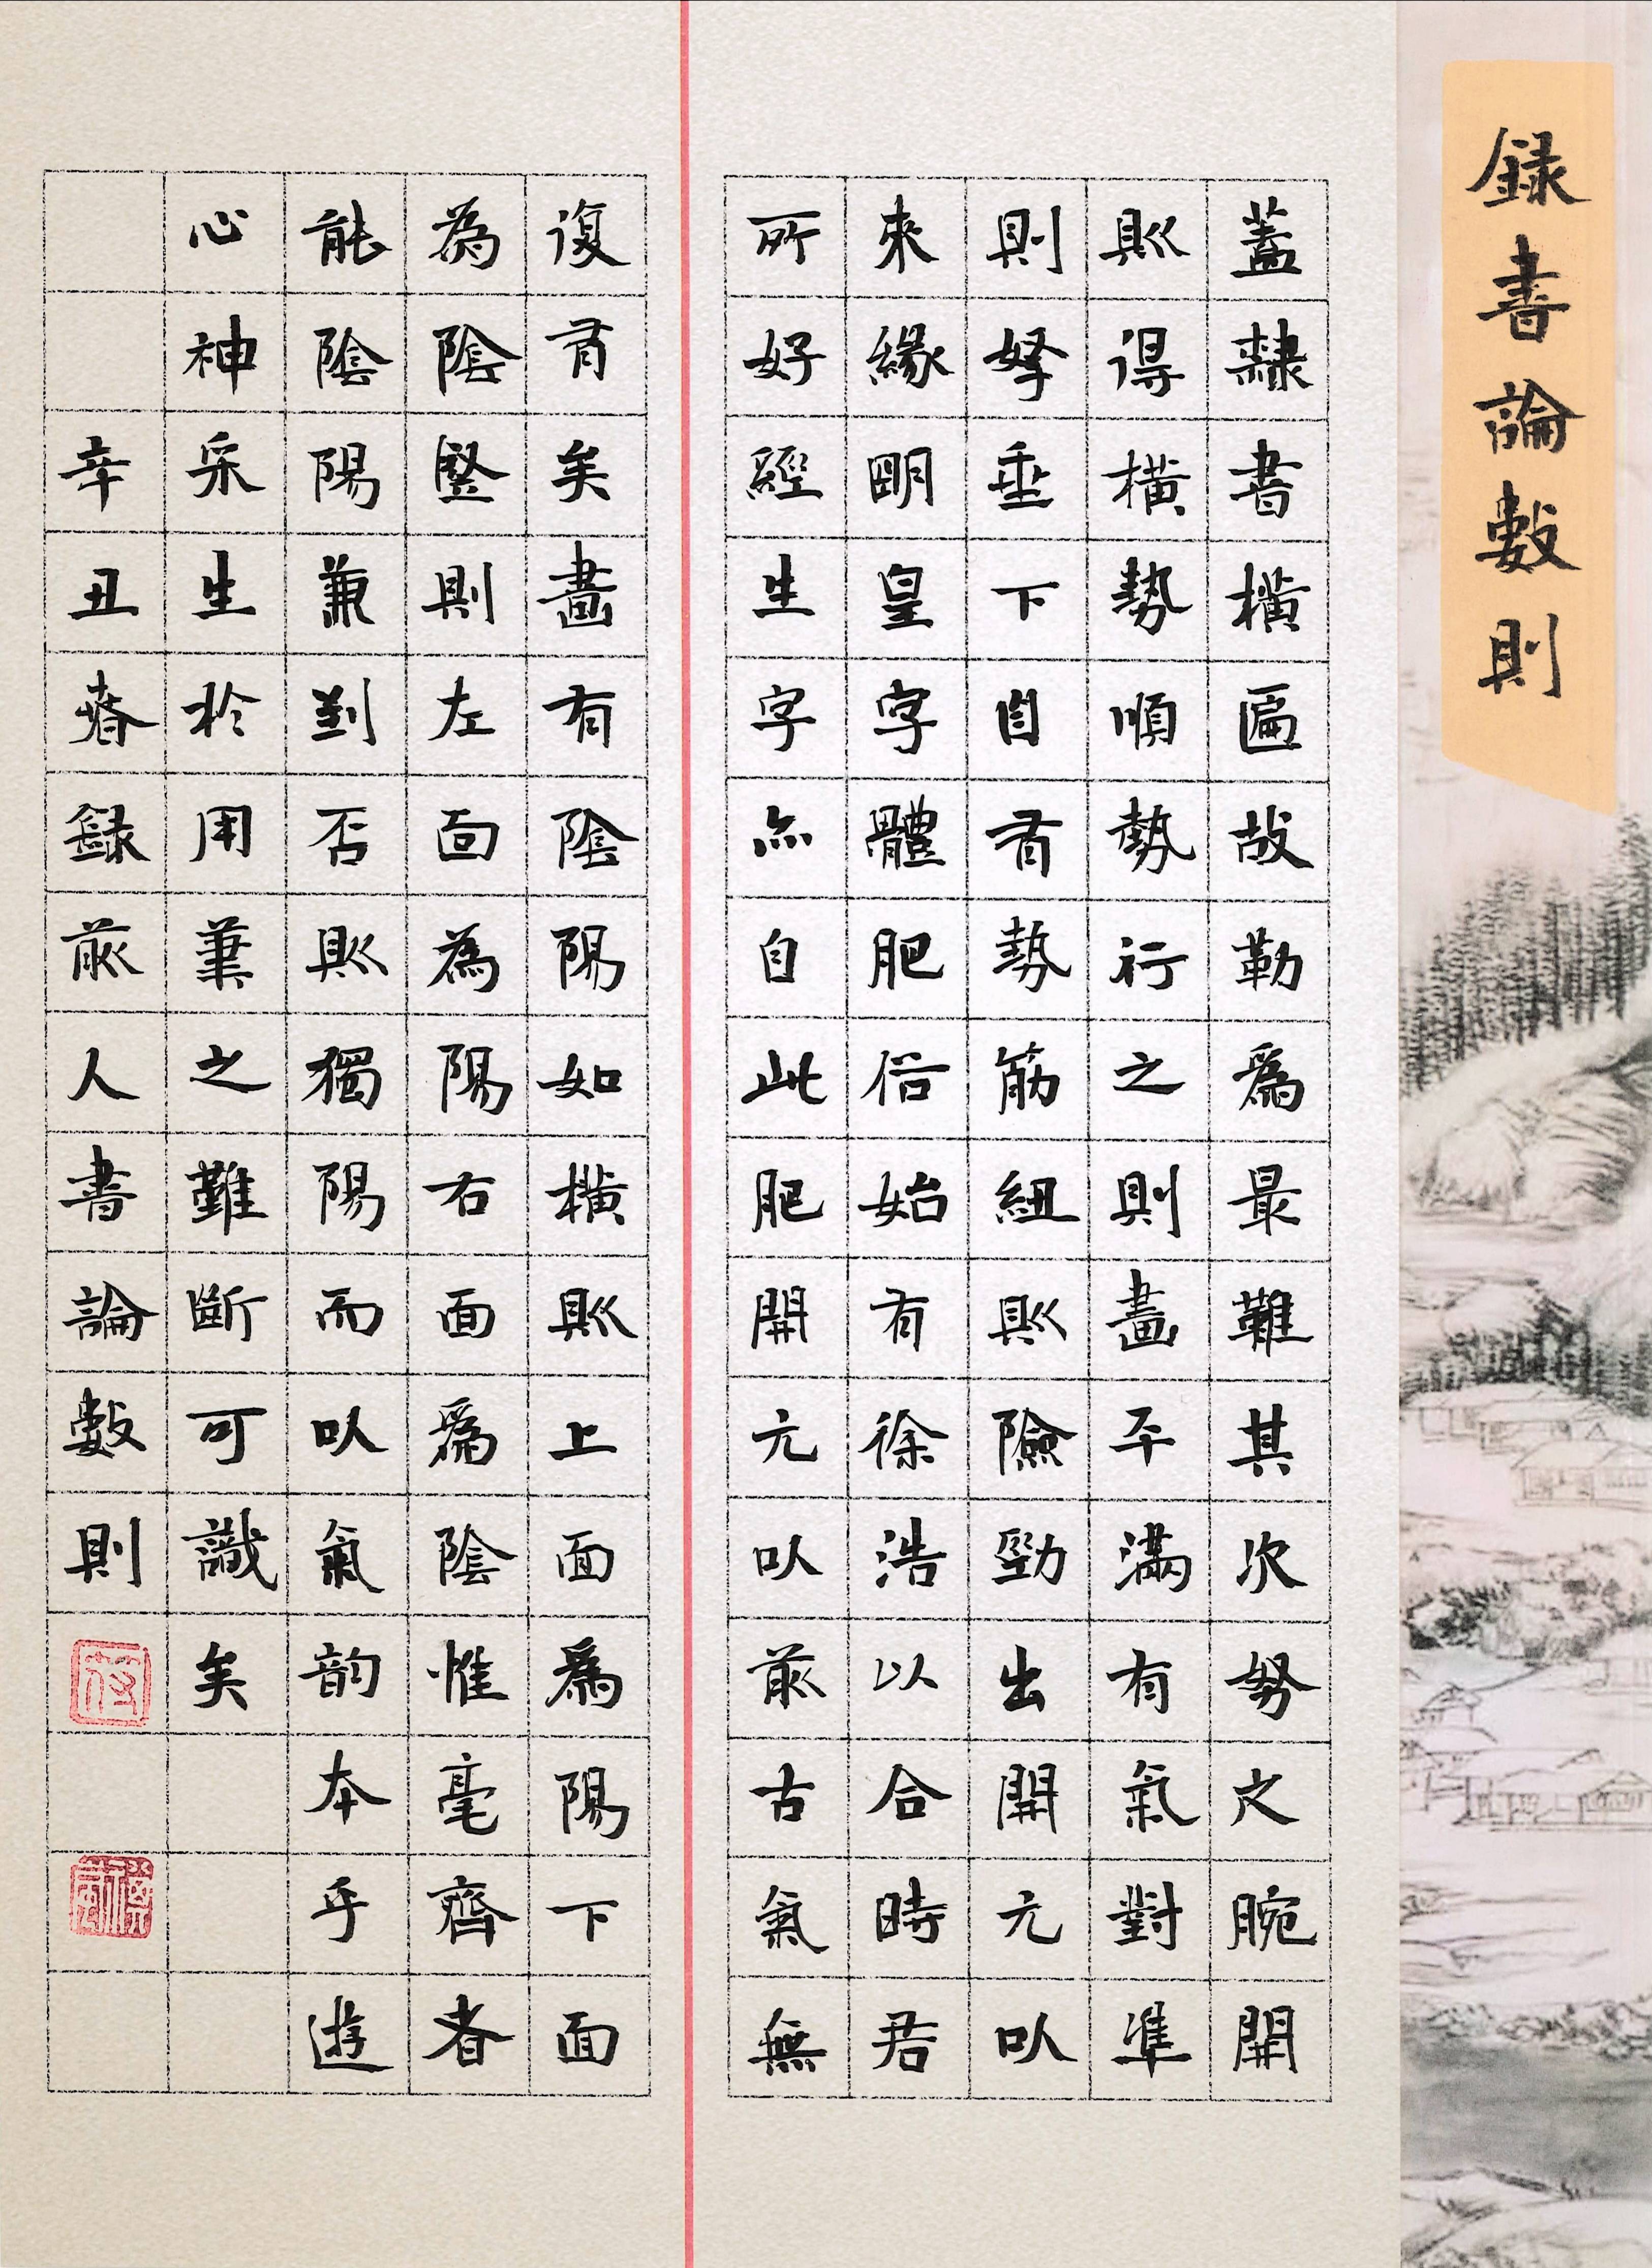 録書論數則
蓋隸書橫匾故勒爲最難其次努之腕開
則得橫勢順勢行之則畫平滿有氣對準
則拏垂下自有勢筋紐則險勁出開元以
來緣明皇字體肥俗始有徐浩以合時君
所好經生字亦自此肥開元以前古氣無
復有矣畫有陰陽如橫則上面爲陽下面
為陰豎則左面為陽右面爲陰惟毫齊者
能陰陽兼到否則獨陽而以氣韵本乎遊
心神采生於用筆之難斷可識矣
辛丑春録前人書論數則